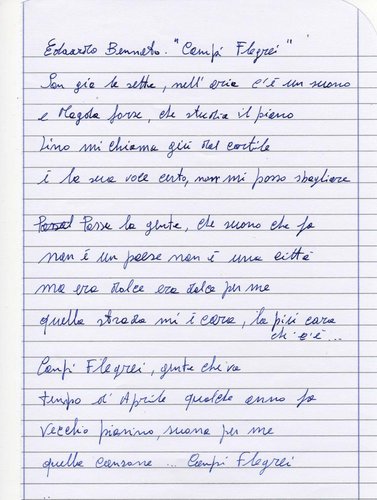 Edoardo Bennato. "Campi Flegrei"
Son già le sette, nell'aria c'è un suono
e Magola forse, che studia il piano
Lino mi chiama giù dal cortile
è la sua voce certo, non mi posso sbagliare
Passa la gente, che suono che fa
non è un paese non è una città
ma era dolce era dolce per me
quella strada mi è cara, la più cara
che c'è...
Campi Flegrei, gente che va
tempo d'Aprile qualche anno fa
Vecchio pianino, suona per me
quella canzone ... Campi Flegrei